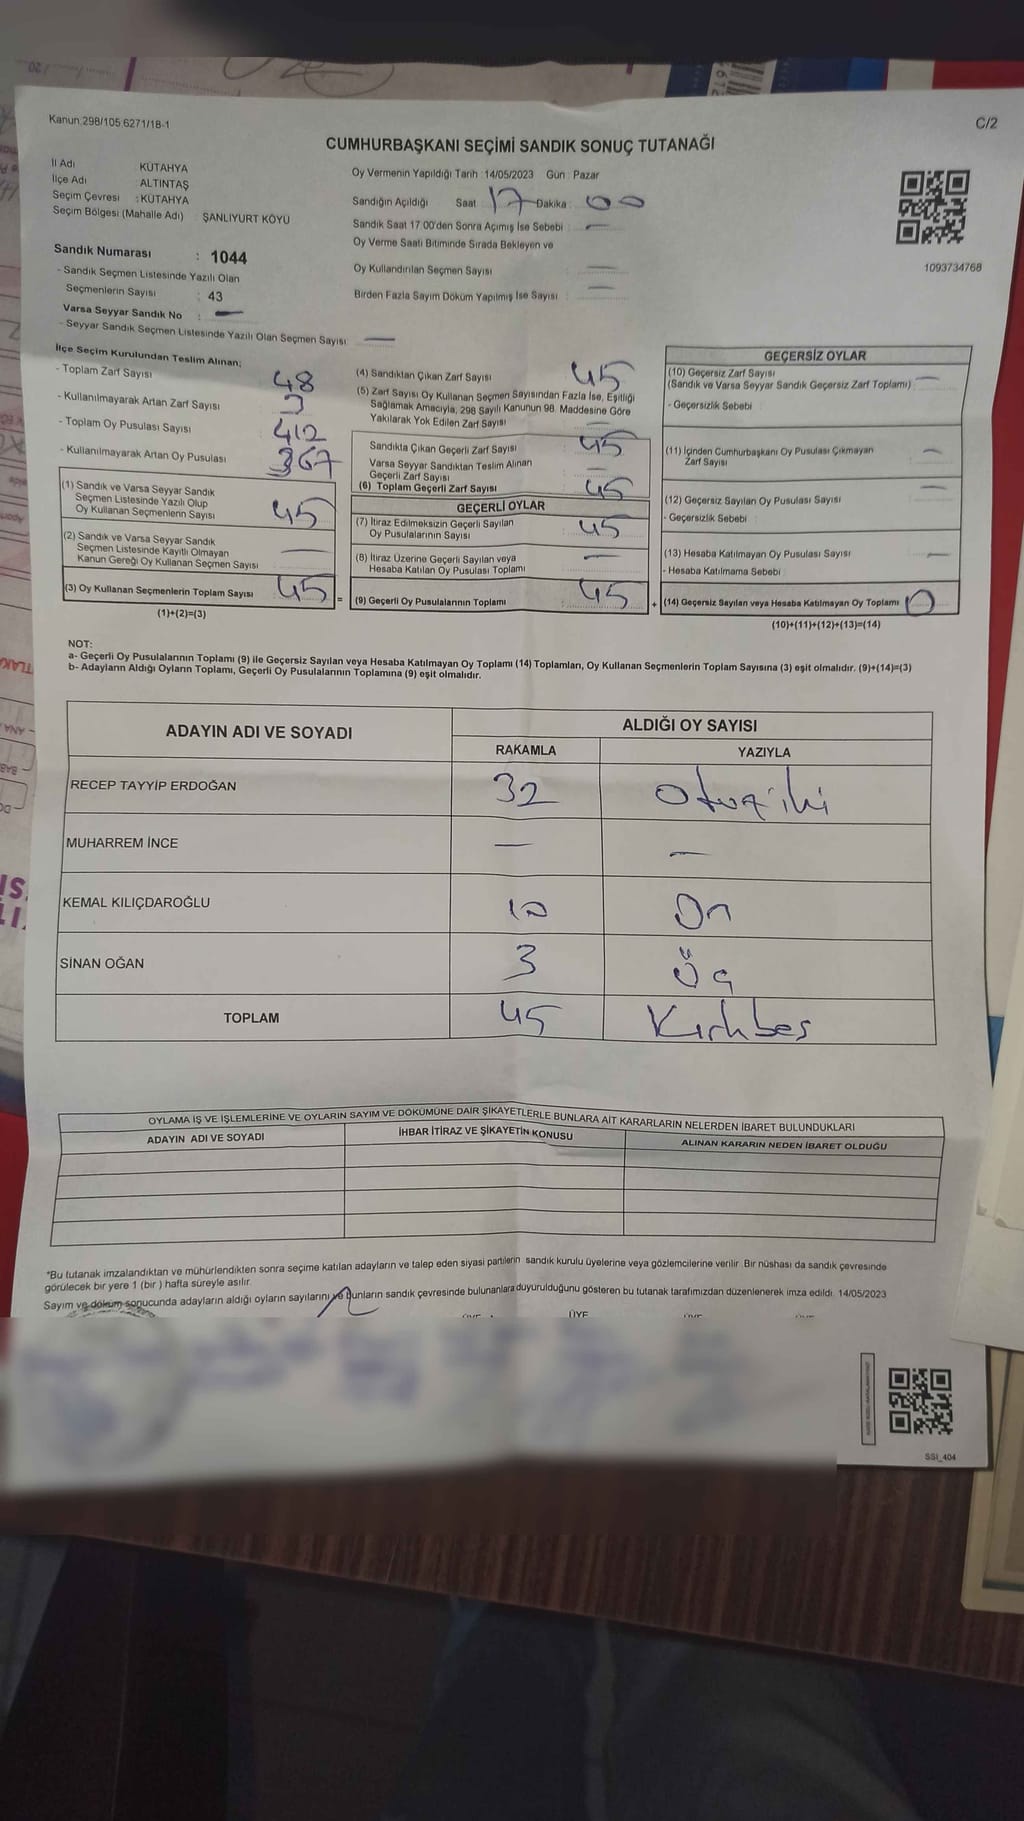 Kanun:298/105 6271/18-1
C/2
CUMHURBAŞKANI SEÇİMİ SANDIK SONUÇ TUTANAĞI
İl Adı KÜTAHYA
İlçe Adı ALTINTAŞ
Seçim Çevresi : KÜTAHYA
Seçim Bölgesi (Mahalle Adı) ŞANLIYURT KÖYÜ
Oy Vermenin Yapıldığı Tarih : 14/05/2023 Gün : Pazar
Sandığın Açıldığı Saat 17 Dakika : 00
Sandık Saat 17.00'den Sonra Açımış İse Sebebi : —
Oy Verme Saati Bitiminde Sırada Bekleyen ve
Oy Kullandırılan Seçmen Sayısı : —
Birden Fazla Sayım Döküm Yapılmış İse Sayısı : —
1093734768
Sandık Numarası : 1044
- Sandık Seçmen Listesinde Yazılı Olan
Seçmenlerin Sayısı : 43
Varsa Seyyar Sandık No : —
- Seyyar Sandık Seçmen Listesinde Yazılı Olan Seçmen Sayısı: —
İlçe Seçim Kurulundan Teslim Alınan;
- Toplam Zarf Sayısı 48
- Kullanılmayarak Artan Zarf Sayısı 3
- Toplam Oy Pusulası Sayısı 412
- Kullanılmayarak Artan Oy Pusulası 367
(1) Sandık ve Varsa Seyyar Sandık
Seçmen Listesinde Yazılı Olup
Oy Kullanan Seçmenlerin Sayısı 45
(2) Sandık ve Varsa Seyyar Sandık
Seçmen Listesinde Kayıtlı Olmayan
Kanun Gereği Oy Kullanan Seçmen Sayısı —
(3) Oy Kullanan Seçmenlerin Toplam Sayısı 45 =
(1)+(2)=(3)
(4) Sandıktan Çıkan Zarf Sayısı 45
(5) Zarf Sayısı Oy Kullanan Seçmen Sayısından Fazla İse, Eşitliği
Sağlamak Amacıyla, 298 Sayılı Kanunun 98. Maddesine Göre
Yakılarak Yok Edilen Zarf Sayısı —
Sandıkta Çıkan Geçerli Zarf Sayısı 45
Varsa Seyyar Sandıktan Teslim Alınan
Geçerli Zarf Sayısı —
(6) Toplam Geçerli Zarf Sayısı 45
GEÇERLİ OYLAR
(7) İtiraz Edilmeksizin Geçerli Sayılan
Oy Pusulalarının Sayısı 45
(8) İtiraz Üzerine Geçerli Sayılan veya
Hesaba Katılan Oy Pusulası Toplamı —
(9) Geçerli Oy Pusulalarının Toplamı 45 +
GEÇERSİZ OYLAR
(10) Geçersiz Zarf Sayısı —
(Sandık ve Varsa Seyyar Sandık Geçersiz Zarf Toplamı)
- Geçersizlik Sebebi :
(11) İçinden Cumhurbaşkanı Oy Pusulası Çıkmayan —
Zarf Sayısı
(12) Geçersiz Sayılan Oy Pusulası Sayısı —
- Geçersizlik Sebebi :
(13) Hesaba Katılmayan Oy Pusulası Sayısı —
- Hesaba Katılmama Sebebi :
(14) Geçersiz Sayılan veya Hesaba Katılmayan Oy Toplamı 0
(10)+(11)+(12)+(13)=(14)
NOT:
a- Geçerli Oy Pusulalarının Toplamı (9) ile Geçersiz Sayılan veya Hesaba Katılmayan Oy Toplamı (14) Toplamları, Oy Kullanan Seçmenlerin Toplam Sayısına (3) eşit olmalıdır. (9)+(14)=(3)
b- Adayların Aldığı Oyların Toplamı, Geçerli Oy Pusulalarının Toplamına (9) eşit olmalıdır.
ADAYIN ADI VE SOYADI ALDIĞI OY SAYISI
RAKAMLA YAZIYLA
RECEP TAYYİP ERDOĞAN 32 Otuz iki
MUHARREM İNCE — —
KEMAL KILIÇDAROĞLU 10 On
SİNAN OĞAN 3 Üç
TOPLAM 45 Kırkbeş
OYLAMA İŞ VE İŞLEMLERİNE VE OYLARIN SAYIM VE DÖKÜMÜNE DAİR ŞİKAYETLERLE BUNLARA AİT KARARLARIN NELERDEN İBARET BULUNDUKLARI
ADAYIN ADI VE SOYADI İHBAR İTİRAZ VE ŞİKAYETİN KONUSU ALINAN KARARIN NEDEN İBARET OLDUĞU
*Bu tutanak imzalandıktan ve mühürlendikten sonra seçime katılan adayların ve talep eden siyasi partilerin sandık kurulu üyelerine veya gözlemcilerine verilir. Bir nüshası da sandık çevresinde
görülecek bir yere 1 (bir ) hafta süreyle asılır.
Sayım ve döküm sonucunda adayların aldığı oyların sayılarını ve bunların sandık çevresinde bulunanlara duyurulduğunu gösteren bu tutanak tarafımızdan düzenlenerek imza edildi. 14/05/2023
ÜYE
SSI_404